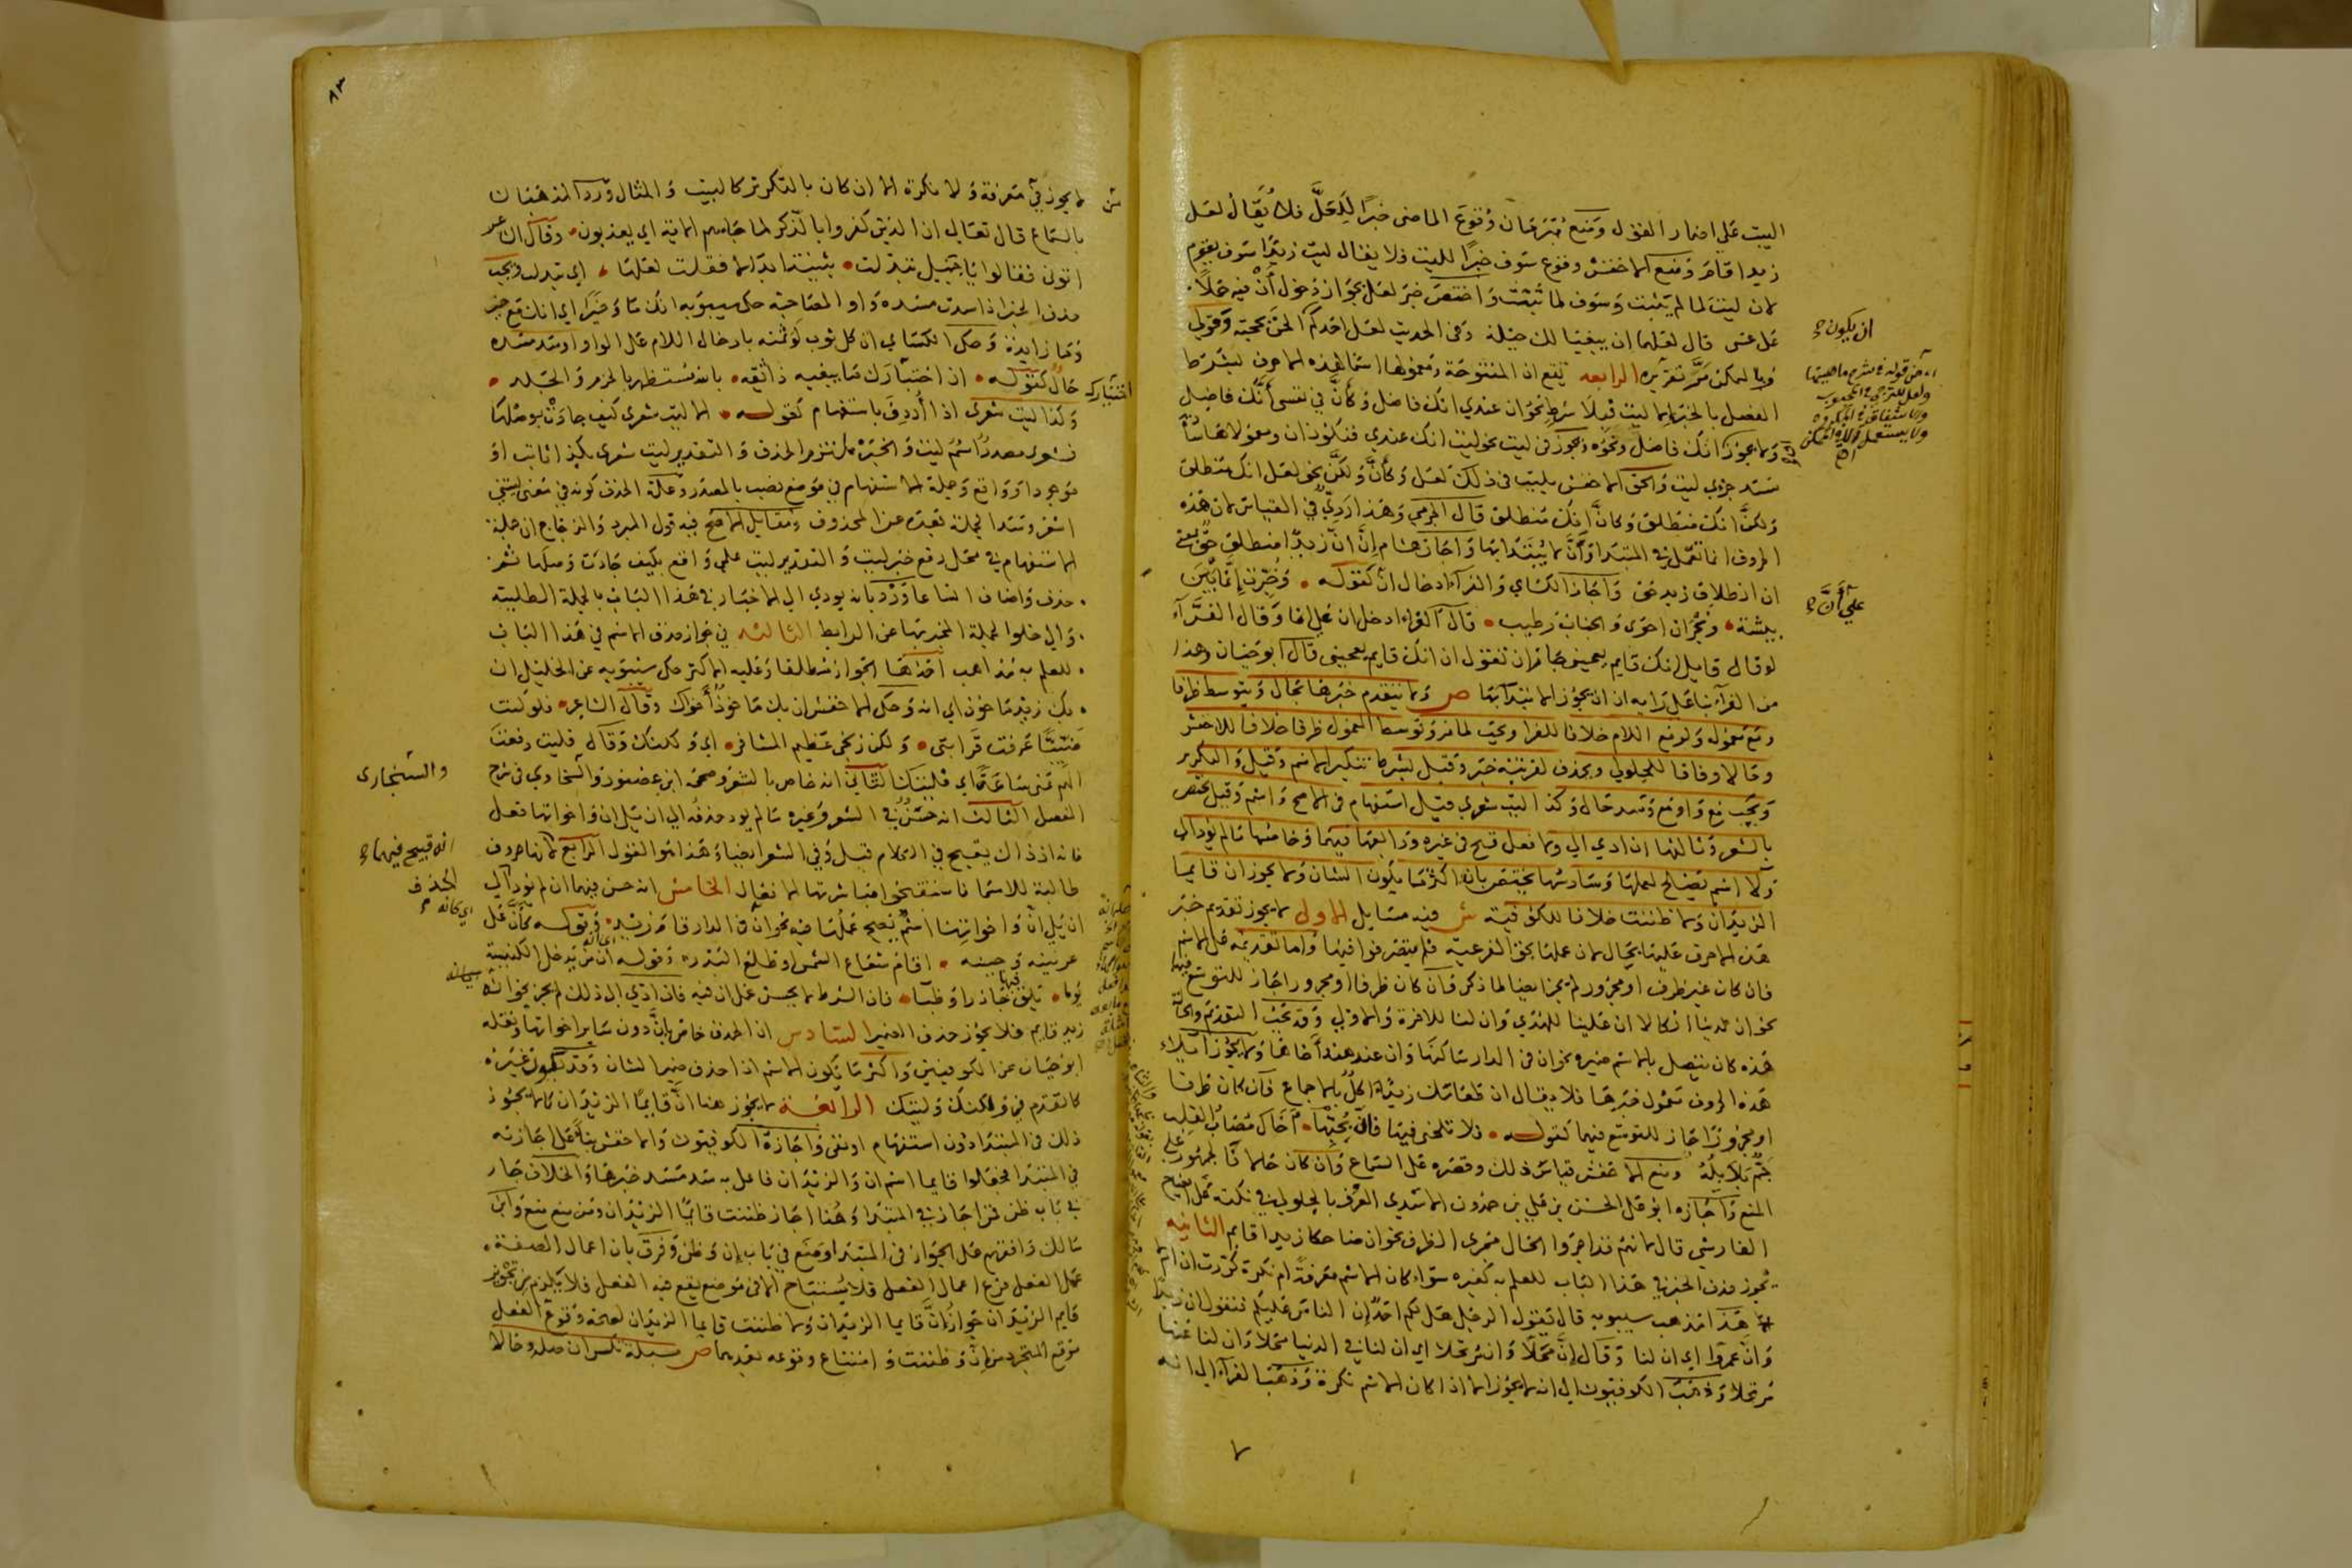 البيت على اضمار القول ومنع مبرمان وقوع الماضى خبرا للعل فلا يقال لعل
زيدا قام ومنع الاخفش وقوع سوف خبرا لليت فلا يقال ليت زيدا سوف يقوم
لان ليت لما لم يثبت وسوف لما ثبت واختص خبر لعل بجواز دخول أن فيه حملا
على عسى قال لعلهما ان يبغيا لك حيلة وفى الحديث لعل احدكم الحن بحجته وقولى
الرابعة تقع ان المفتوحة ومعمولها اسما لهذه الاحرف بشرط
الفصل بالخبر الا ليت فبلا شرط نحو ان عندي انك فاضل وكأن في نفسى أنك فاضل
ولا يجوز انك فاضل ونحوه ويجوز فى ليت نحو ليت انك عندي فتكون ان ومعمولاها سادا
مسد جزءي ليت والحق الاخفش بليت فى ذلك لعل وكأن ولكن نحو لعل انك منطلق
ولكن انك منطلق وكأن انك منطلق قال الجرمي وهذا رديّ في القياس لان هذه
الحروف انما تعمل في المبتدا وأن لا يبتدا بها واجاز هشام إن أن زيدا منطلق حق بمعنى
ان انطلاق زيد حق واجاز الكساي والفراء ادخال ان كقوله وخبرت إنما بين
بيشة ونجران احوى والجناب رطيب قال الفراء ادخل ان على انما وقال الفراء
لو قال قايل انك قايم يعجبنى جاز ان تقول ان انك قايم يعجبنى قال ابو حيان وهذا
من الفراء بنا على رايه ان ان يجوز الابتدا بها ص ولا يتقدم خبرها بحال ويتوسط ظرفا
ومنع معموله ولو مع اللام خلافا للفرا ويجب لمانع وتوسط المعمول ظرفا خلافا للاخفش
وحالا وفاقا للجلولي ويحذف لقرينة خبر وقيل بشرط تنكير الاسم وقيل والتكرير
ويجب مع واو مع وسد حال وكذا ليت شعري قبل استفهام فى الاصح واسم وقيل يختص
بالشعر وثالثها ان ادي الى ولا فعل قبح فى غيره ورابعها فيهما وخامسها ما لم يود الى
ولا اسم يصلح لعملها وسادسها يختص بان واكثر ما يكون الشان ولا يجوز ان قايما
الزيدان ولا ظننت خلافا للكوفية ش فيه مسايل الاولى لا يجوز تقديم خبر
هذه الاحرف عليها بحال لان عملها بحق الفرعية فلم يتصرفوا فيها واما تقديمه على الاسم
فان كان غير ظرف او مجرور لم يجز ايضا لما ذكر فان كان ظرفا او مجرورا جاز للتوسع فيها
نحو ان لدينا انكالا ان علينا للهدي وان لنا للاخرة والاولي وقد يجب التقديم والحالة
هذه كان يتصل بالاسم ضميره نحو ان فى الدار ساكنها وان عند هند أخاها ولا يجوز ايلاء
هذه الحروف معمول خبرها فلا يقال ان طعامك زيدا اكل بالاجماع فان كان ظرفا
او مجرورا جاز للتوسع فيها كقوله فلا تلحنى فيها فان بحبها أخاك مصاب القلب
جم بلابله ومنع الاخفش قياس ذلك وقصره على السماع وان كان حالا فالجمهور على
المنع واجازه ابو على الحسن بن على بن حمدون الاسدي العرف بالجلولي في نكته على ايضاح
الفارسي قال لانهم قد اجروا الحال مجرى الظرف نحو ان ضاحكا زيدا قايم الثانية
يجوز حذف الخبر في هذا الباب للعلم به كغيره سواء كان الاسم معرفة ام نكرة كررت ان ام لا
هذا مذهب سيبويه قال تقول الرجل هل لكم احد إن الناس عليكم فتقول ان زيدا
وان عمرا اي ان لنا وقال إن محلا وان مرتحلا اي ان لنا في الدنيا محلا وان لنا عنها
مرتحلا وذهب الكوفيون الى انه لا يجوز الا اذا كان الاسم نكرة وذهب الفراء الى انه
ان يكون
على أن
٨٣
لا يجوز في معرفة ولا نكرة الا ان كان بالتكرير كالبيت والمثال ورد المذهبان
بالسماع قال تعالى ان الذين كفروا بالذكر لما جاءهم الاية اي يعذبون وقال
اتونى فقالوا يا جميل تبدلت بثينة ابدالا فقلت لعلها اي تبدلت ويجب
حذف الخبر اذا سدت مسده واو المصاحبة حكى سيبويه انك ما وخيرا اي انك مع خير
وما زايدة وحكى الكساي ان كل ثوب لو ثمنه بادخال اللام على الواو او سد مسده
حال كقوله ان اختيارك ما يبغيه ذا ثقة بالله مستظهر بالحزم والجلد
وكذا ليت شعري اذا أردف باستفهام كقوله الا ليت شعري كيف حادث بوصلها
فشعري مصدر اسم ليت والخبر ملتزم الحذف والتقدير ليت شعري بكذا ثابت او
موجود او واقع وجملة الاستفهام في موضع نصب بالمصدر وعلة الحذف كونه في معنى ليتنى
اشعر وسد الجملة بعده عن المحذوف ومقابل الاصح فيه قول المبرد والزجاج ان جملة
الاستفهام في محل رفع خبر ليت والتقدير ليت علمي واقع بكيف حادث وصلها ثم
حذف واضاف اتساعا ورد بانه يودي الى الاخبار في هذا الباب بالجملة الطلبية
والى خلو الجملة المخبر بها عن الرابط الثالثة في جواز حذف الاسم في هذا الباب
للعلم به مذاهب احدها الجواز مطلقا وعليه الاكثر حكى سيبويه عن الخليل ان
بك زيد ماخوذ اي انه وحكى الاخفش ان بك ماخوذ أخواك وقال الشاعر فلو كنت
ضبيا عرفت قرابتى ولكن زنجى عظيم المشافر اي ولكنك وقال فليت دفعت
الهم عنى ساعة اي فليتك الثانى انه خاص بالشعر وصححه ابن عصفور والسخاوي فى شرح
المفصل الثالث انه حسن في الشعر وغيره ما لم يود حذفه الى ان يلى ان واخواتها فعل
فانه اذ ذاك يقبح في الكلام قيل وفي الشعر ايضا وهذا هو القول الرابع لانها حروف
طالبة للاسما فاستقبحوا مباشرتها الافعال الخامس انه حسن فيهما ان لم يود الى
ان يلي ان واخواتها اسم يصح عملها فيه نحو ان فى الدار قام زيد
عرنينه وجبينه اقام شعاع الشمس او طلع البدر وقوله ان من يدخل الكنيسة
يوما يلق فيها جاذرا وظبا فان الشرط لا يحسن عمل ان فيه فان ادي الى ذلك لم يجز نحو انه
زيد قايم فلا يجوز حذف الضمير السادس ان الحذف خاص بإن دون ساير اخواتها ونقله
ابو حيان عن الكوفيين واكثر ما يكون الاسم اذا حذف ضمير الشان وقد يكون غيره
كما تقدم في ولكنك وليتك الرابعة لا يجوز هنا ان قايما الزيدان كما لا يجوز
ذلك فى المبتدا دون استفهام او نفى واجازه الكوفيون والاخفش بنا على اجازته
في المبتدا فجعلوا قايما اسم ان والزيدان فاعل به سد مسد خبرها والخلاف جار
في باب ظن فمن اجاز في المبتدا وهنا اجاز ظننت قايما الزيدان ومن منع منع وابن
مالك وافقهم على الجواز فى المبتدا ومنع في باب إن وظن وفرق بان اعمال الصفة
عمل الفعل فرع اعمال الفعل فلا يستباح الا فى موضع يقع فيه الفعل فلا يلزم من تجويز
قايم الزيدان جواز إن قايما الزيدان ولا ظننت قايما الزيدان لصحة وقوع الفعل
موقع المتجرد من إن وظننت وامتناع وقوعه بعدهما ص مسيلة تكسر ان صلة وحالا
اختيارك
والسنجارى
انه قبيح فيهما
الحذف
اي كانه